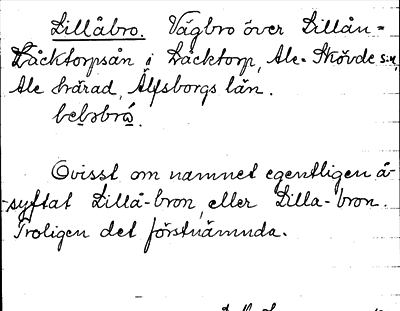 Lillåbro. Vägbro över Lillån =
Låcktorpsån i Låcktorp, Ale-Skövde s:n,
Ale härad, Älfsborgs län.
Ovisst om namnet egentligen å-
syftat Lillå-bron, eller Lilla-bron.
Troligen det förstnämnda.